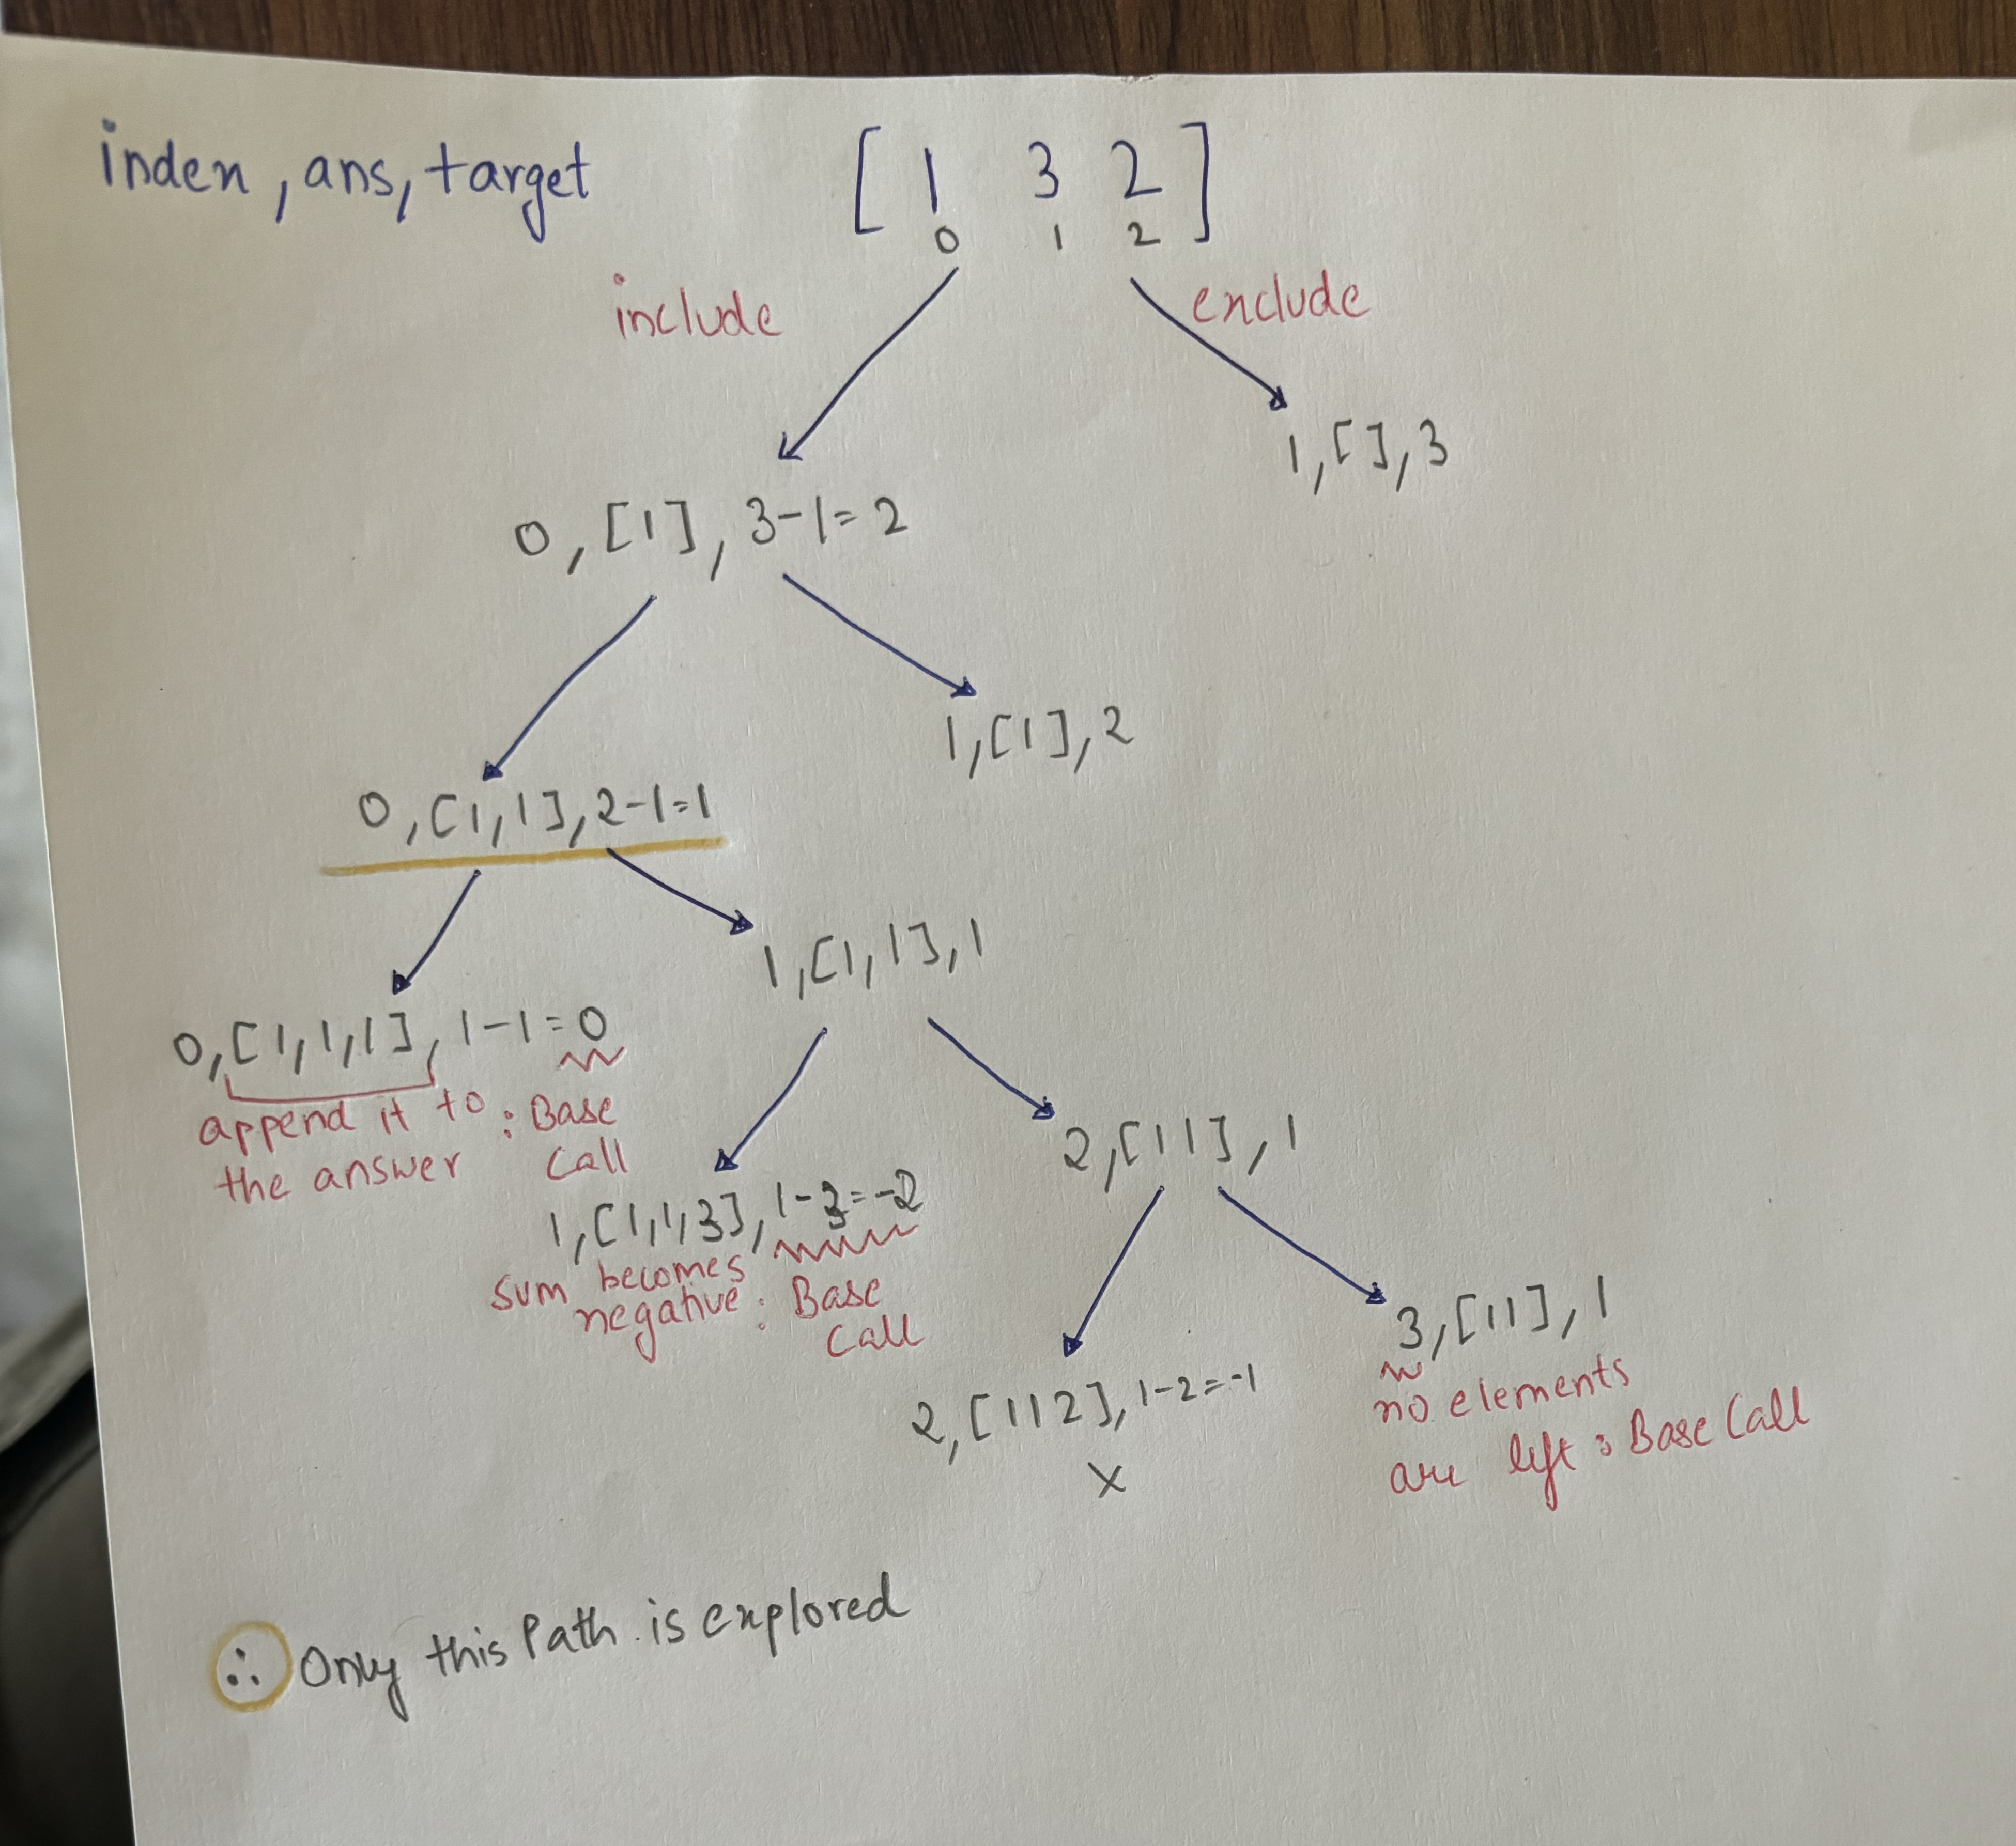 index, ans, target
[ 1 3 2 ]
0 1 2
include
exclude
1, [ ], 3
0, [1], 3-1=2
1, [1], 2
0, [1, 1], 2-1=1
1, [1, 1], 1
0, [1, 1, 1], 1-1=0
append it to : Base
the answer Call
2, [1 1], 1
1, [1, 1, 3], 1-3=-2
sum becomes
negative : Base
Call
3, [1 1], 1
no elements
are left : Base Call
2, [1 1 2], 1-2=-1
X
∴ Only this Path is explored